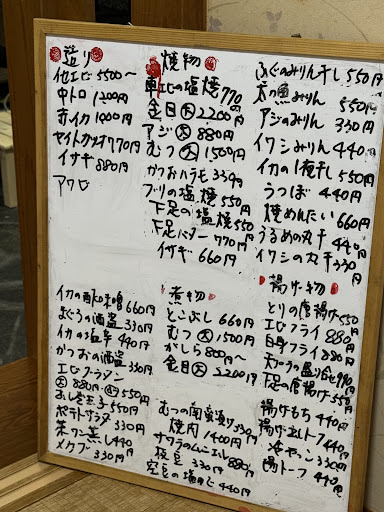 造り
伊勢エビ 5500〜
中トロ 1200円
赤イカ 1000円
ヤイトカツオ 770円
イサギ 880円
アワビ
焼物
車エビの塩焼 770円
金目 大 2200円
アジ 大 880円
むつ 大 1500円
かつおハラモ 330円
ブリの塩焼 550円
下足の塩焼 550
下足バター 770円
イサギ 660円
ふぐのみりん干し 550円
太刀魚みりん 550円
アジのみりん 330円
イワシみりん 440円
イカの1夜干し 550円
うつぼ 440円
焼めんたい 660円
うるめの丸干 440円
イワシの丸干 330円
イカの酢味噌 660円
まぐろの酒盗 330円
イカの塩辛 440円
かつおの酒盗 330円
エビフライ
大 880円 小 550円
だし巻玉子 550円
ポテトサラダ 330円
茶ワン蒸し 440
メカブ 330円
煮物
とこぶし 660円
むつ 大 1500円
がしら 800〜
金目 大 2200円
むつの南蛮漬け 330円
焼肉 1400円
サワラのムニエル 880円
枝豆 330円
空豆の塩ゆで 440円
揚げ物
とりの唐揚げ 550
エビフライ 880円
白身フライ 880円
天プラの盛り合せ 990
下足の唐揚げ 550
揚げもち 440円
揚げ出しトーフ 440
冷やっこ 330円
湯トーフ 440円